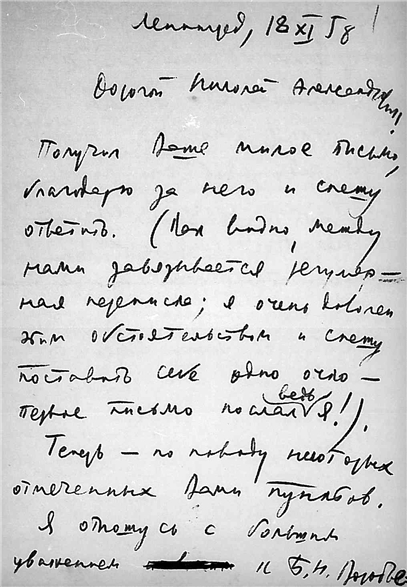 Ленинград, 18 XI 58
Дорогой Николай Александрович!
Получил Ваше милое письмо,
благодарю за него и спешу
ответить. (Как видно, между
нами завязывается регуляр-
ная переписка; я очень доволен
этим обстоятельством и спешу
поставить себе одно очко –
первое письмо послал ведь я!).
Теперь – по поводу некоторых
отмеченных Вами пунктов.
Я отношусь с большим
уважением к Б.Н.